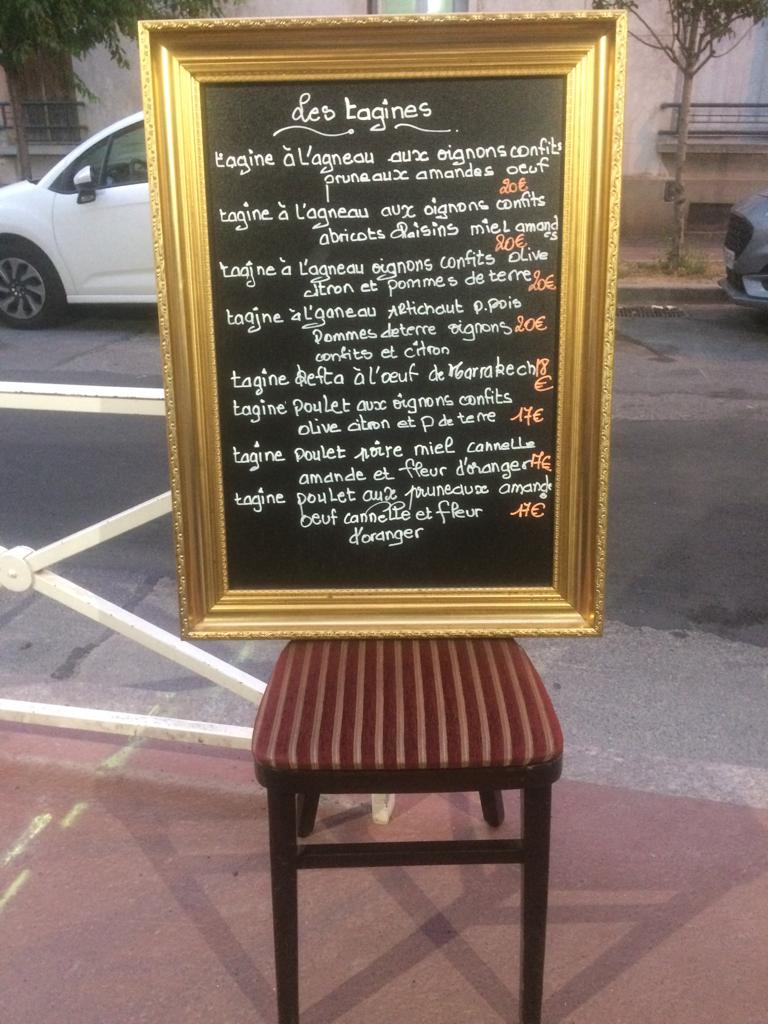 Les tagines
tagine à L'agneau aux oignons confits
pruneaux amandes oeuf
20€
tagine à l'agneau aux oignons confits
abricots Raisins miel amandes
20€
tagine à L'agneau oignons confits olive
citron et pommes de terre 20€
tagine à l'ganeau Artichaut p.pois
Pommes de terre oignons 20€
confits et citron
tagine Kefta à l'oeuf de Marrakech 18
€
tagine poulet aux oignons confits
olive citron et p de terre 17€
tagine poulet poire miel cannelle
amande et fleur d'oranger 17€
tagine poulet aux pruneaux amande
oeuf cannelle et fleur 17€
d'oranger